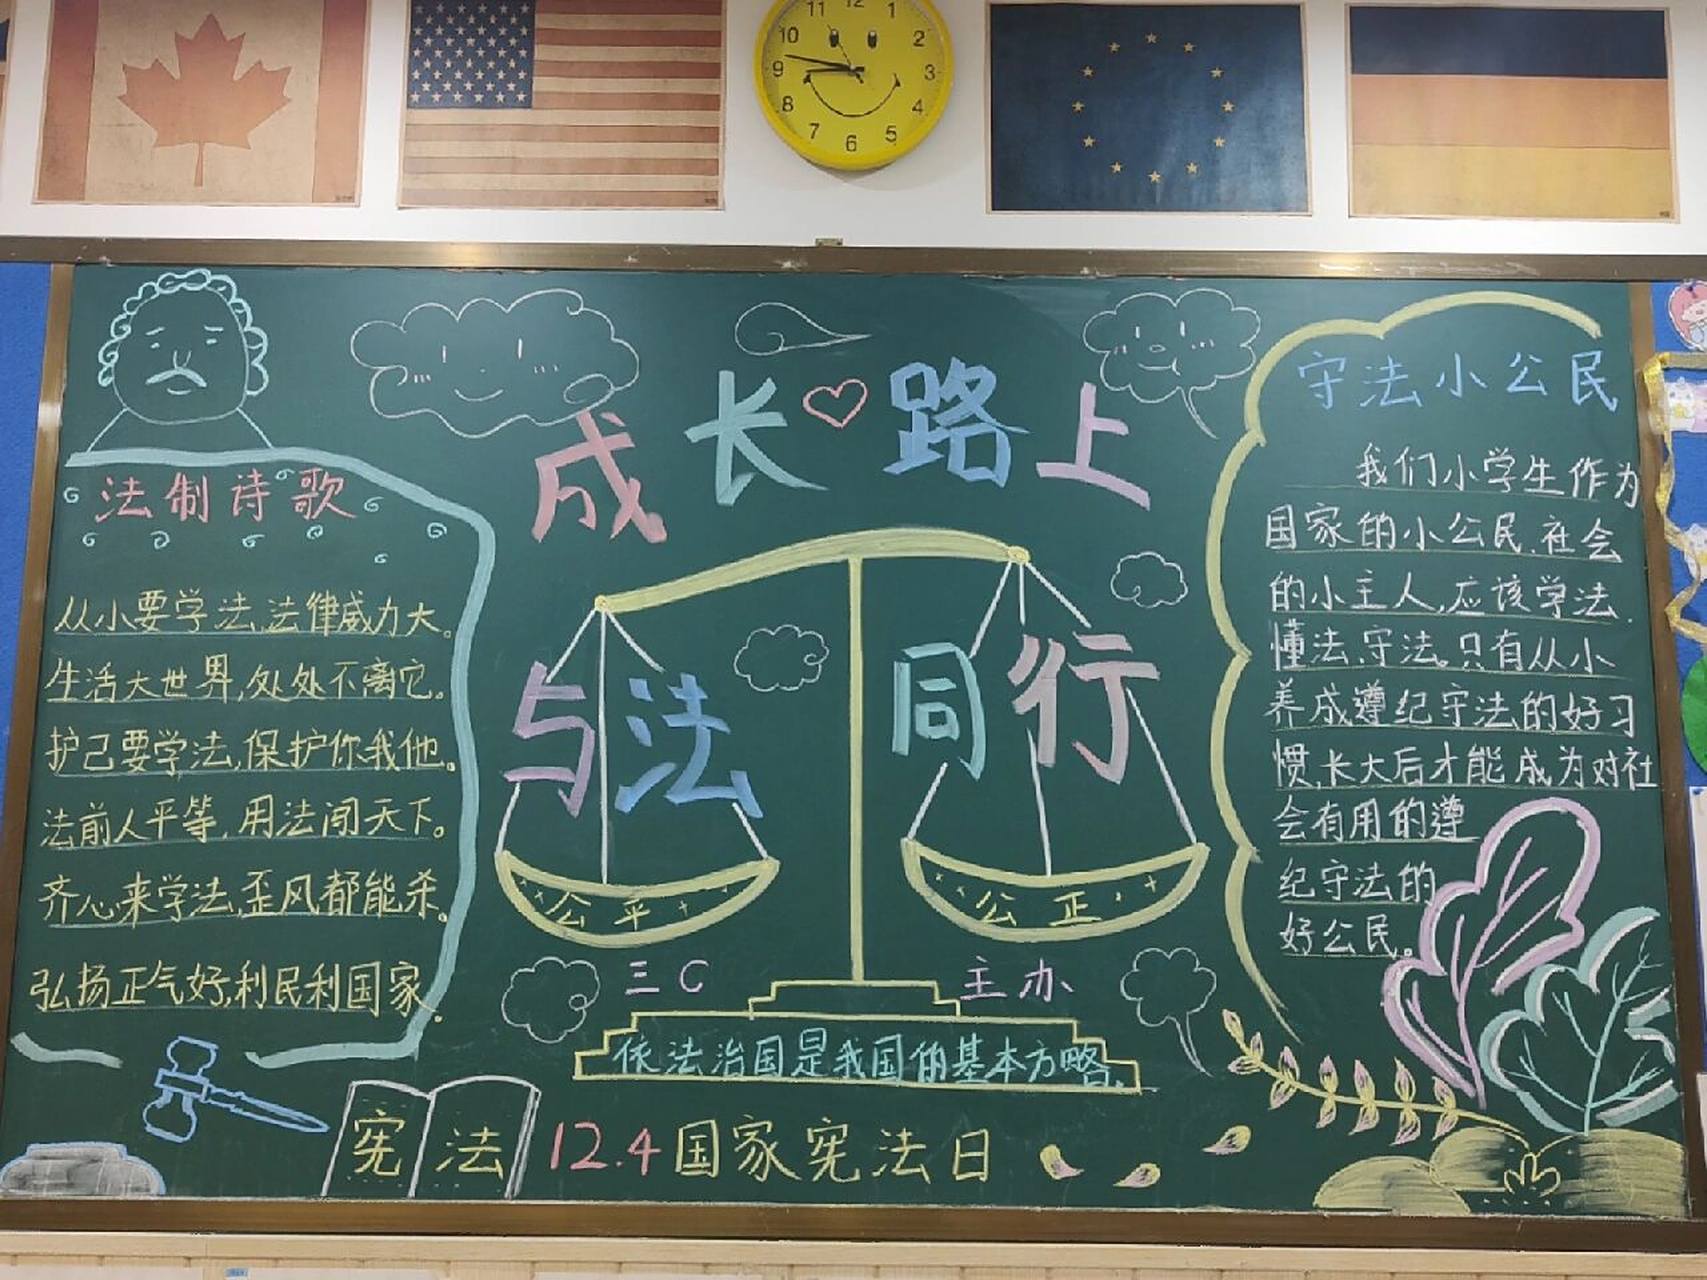 11 12 1
10 2
9 3
8 4
7 6 5
成长路上
与法同行
公平
公正
三C 主办
依法治国是我国的基本方略。
宪法
12.4国家宪法日
法制诗歌
从小要学法,法律威力大。
生活大世界,处处不离它。
护己要学法,保护你我他。
法前人平等,用法闯天下。
齐心来学法,歪风都能杀。
弘扬正气好,利民利国家。
守法小公民
我们小学生作为
国家的小公民、社会
的小主人,应该学法、
懂法、守法。只有从小
养成遵纪守法的好习
惯,长大后才能成为对社
会有用的遵
纪守法的
好公民。